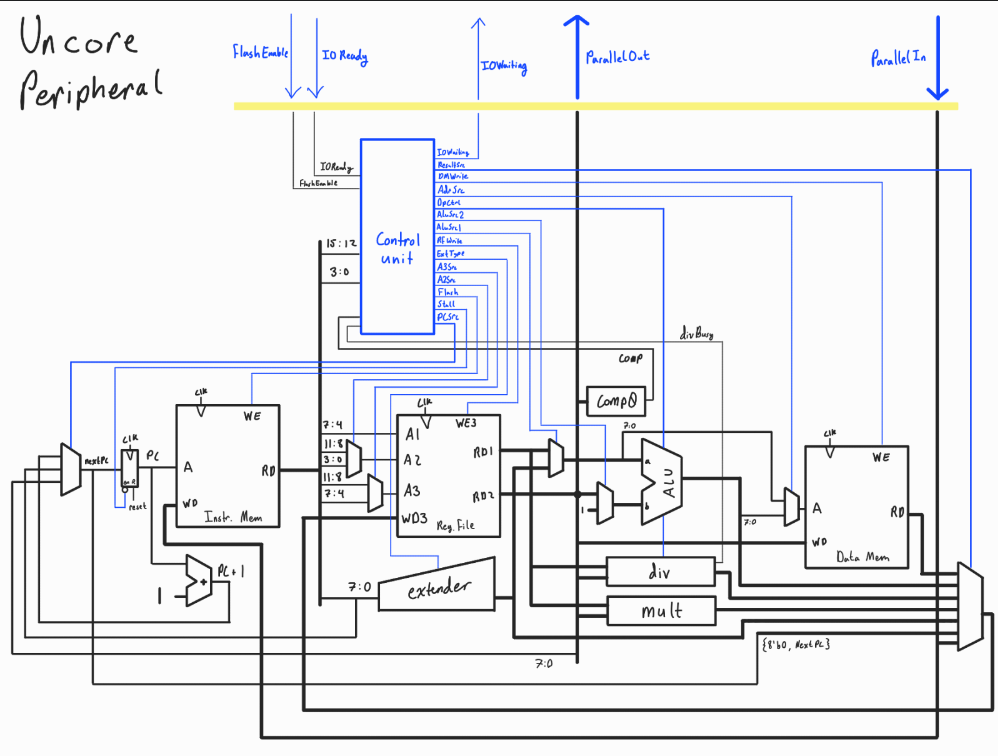 Uncore
Peripheral
FlashEnable
IOReady
IOWaiting
ParallelOut
ParallelIn
IOReady
FlashEnable
Control
unit
IOWaiting
ResultSrc
DMWrite
AdrSrc
OpCtrl
AluSrc2
AluSrc1
RFWrite
ExtType
A3Src
A2Src
Flash
Stall
PCSrc
15:12
3:0
divBusy
comp
Comp0
clk
WE
A
RD
WD
Instr. Mem
nextPC
clk
en R
reset
PC
PC+1
+
1
7:4
11:8
3:0
11:8
7:4
clk
WE3
A1
A2
A3
WD3
RD1
RD2
Reg. File
7:0
extender
1
7:0
a
b
ALU
7:0
div
mult
clk
WE
A
RD
WD
Data Mem
{8'b0, NextPC}
7:0